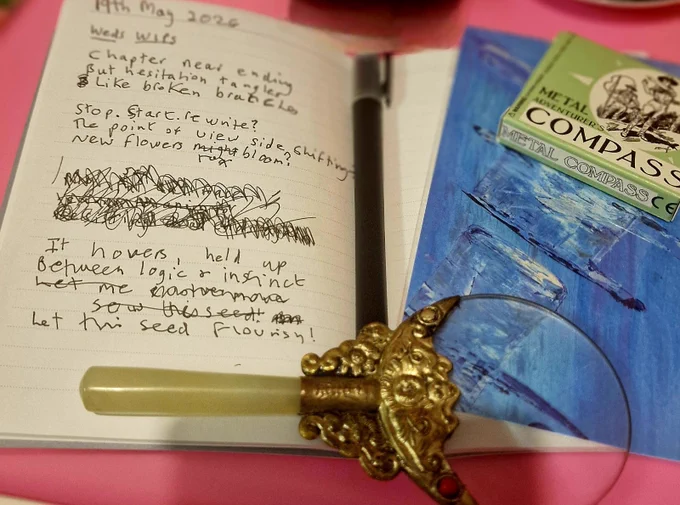 19th May 2026
Weds WIPs
Chapter near ending
But hesitation tangles
Like broken branches
Stop. Start. Rewrite?
The point of view side shifting
New flowers might bloom?
It hovers, held up
Between logic & instinct
Let me
sow this seed!
Let this seed flourish!
METAL
ADVENTURER'S
COMPASS
METAL COMPASS CE